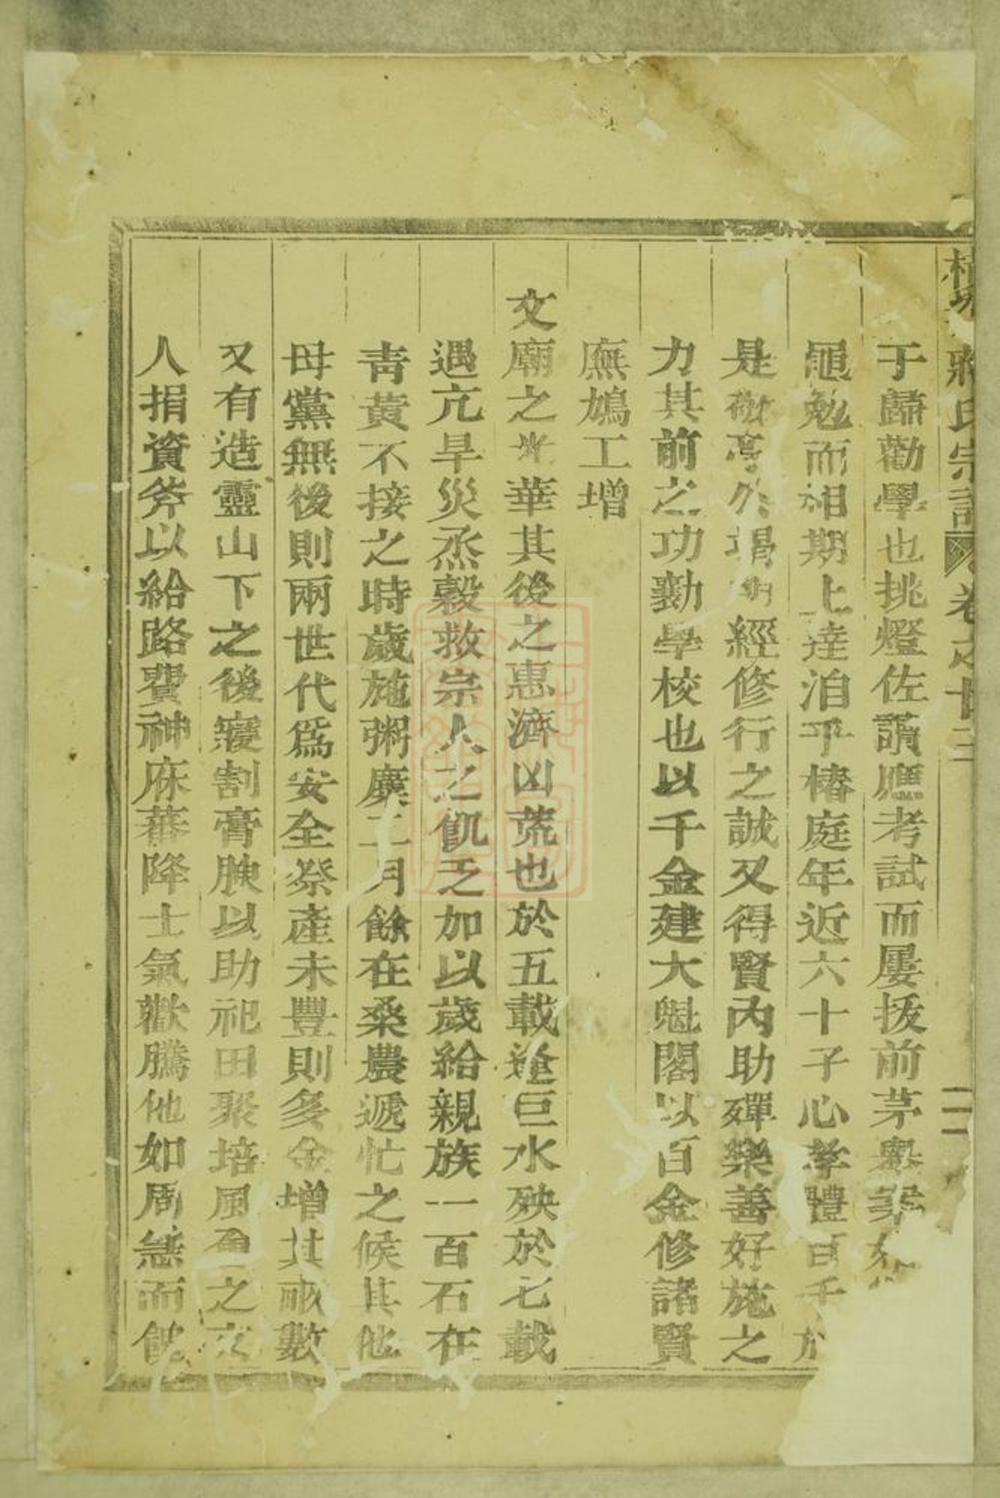 蔣氏宗譜 卷之廿三
于歸勸學也挑燈佐讀應考試而屢拔前茅
黽勉而相期上達洎乎椿庭年近六十子心孝體百千
是 經修行之誠又得賢內助殫樂善好施之
力其前之功勷學校也以千金建大魁閣以百金修諸賢
廡鳩工增
文廟之光華其後之惠濟凶荒也於五載逢巨水殃於七載
遇亢旱災烝穀救宗人之飢乏加以歲給親族一百石在
青黃不接之時歲施粥糜二月餘在桑農遞忙之候其他
母黨無後則兩世代為安全祭產未豐則多金增其 數
又有造靈山下之後寢割膏腴以助祀田聚培風 之文
人捐資斧以給路費神庥蕃降士氣歡騰他如周急而